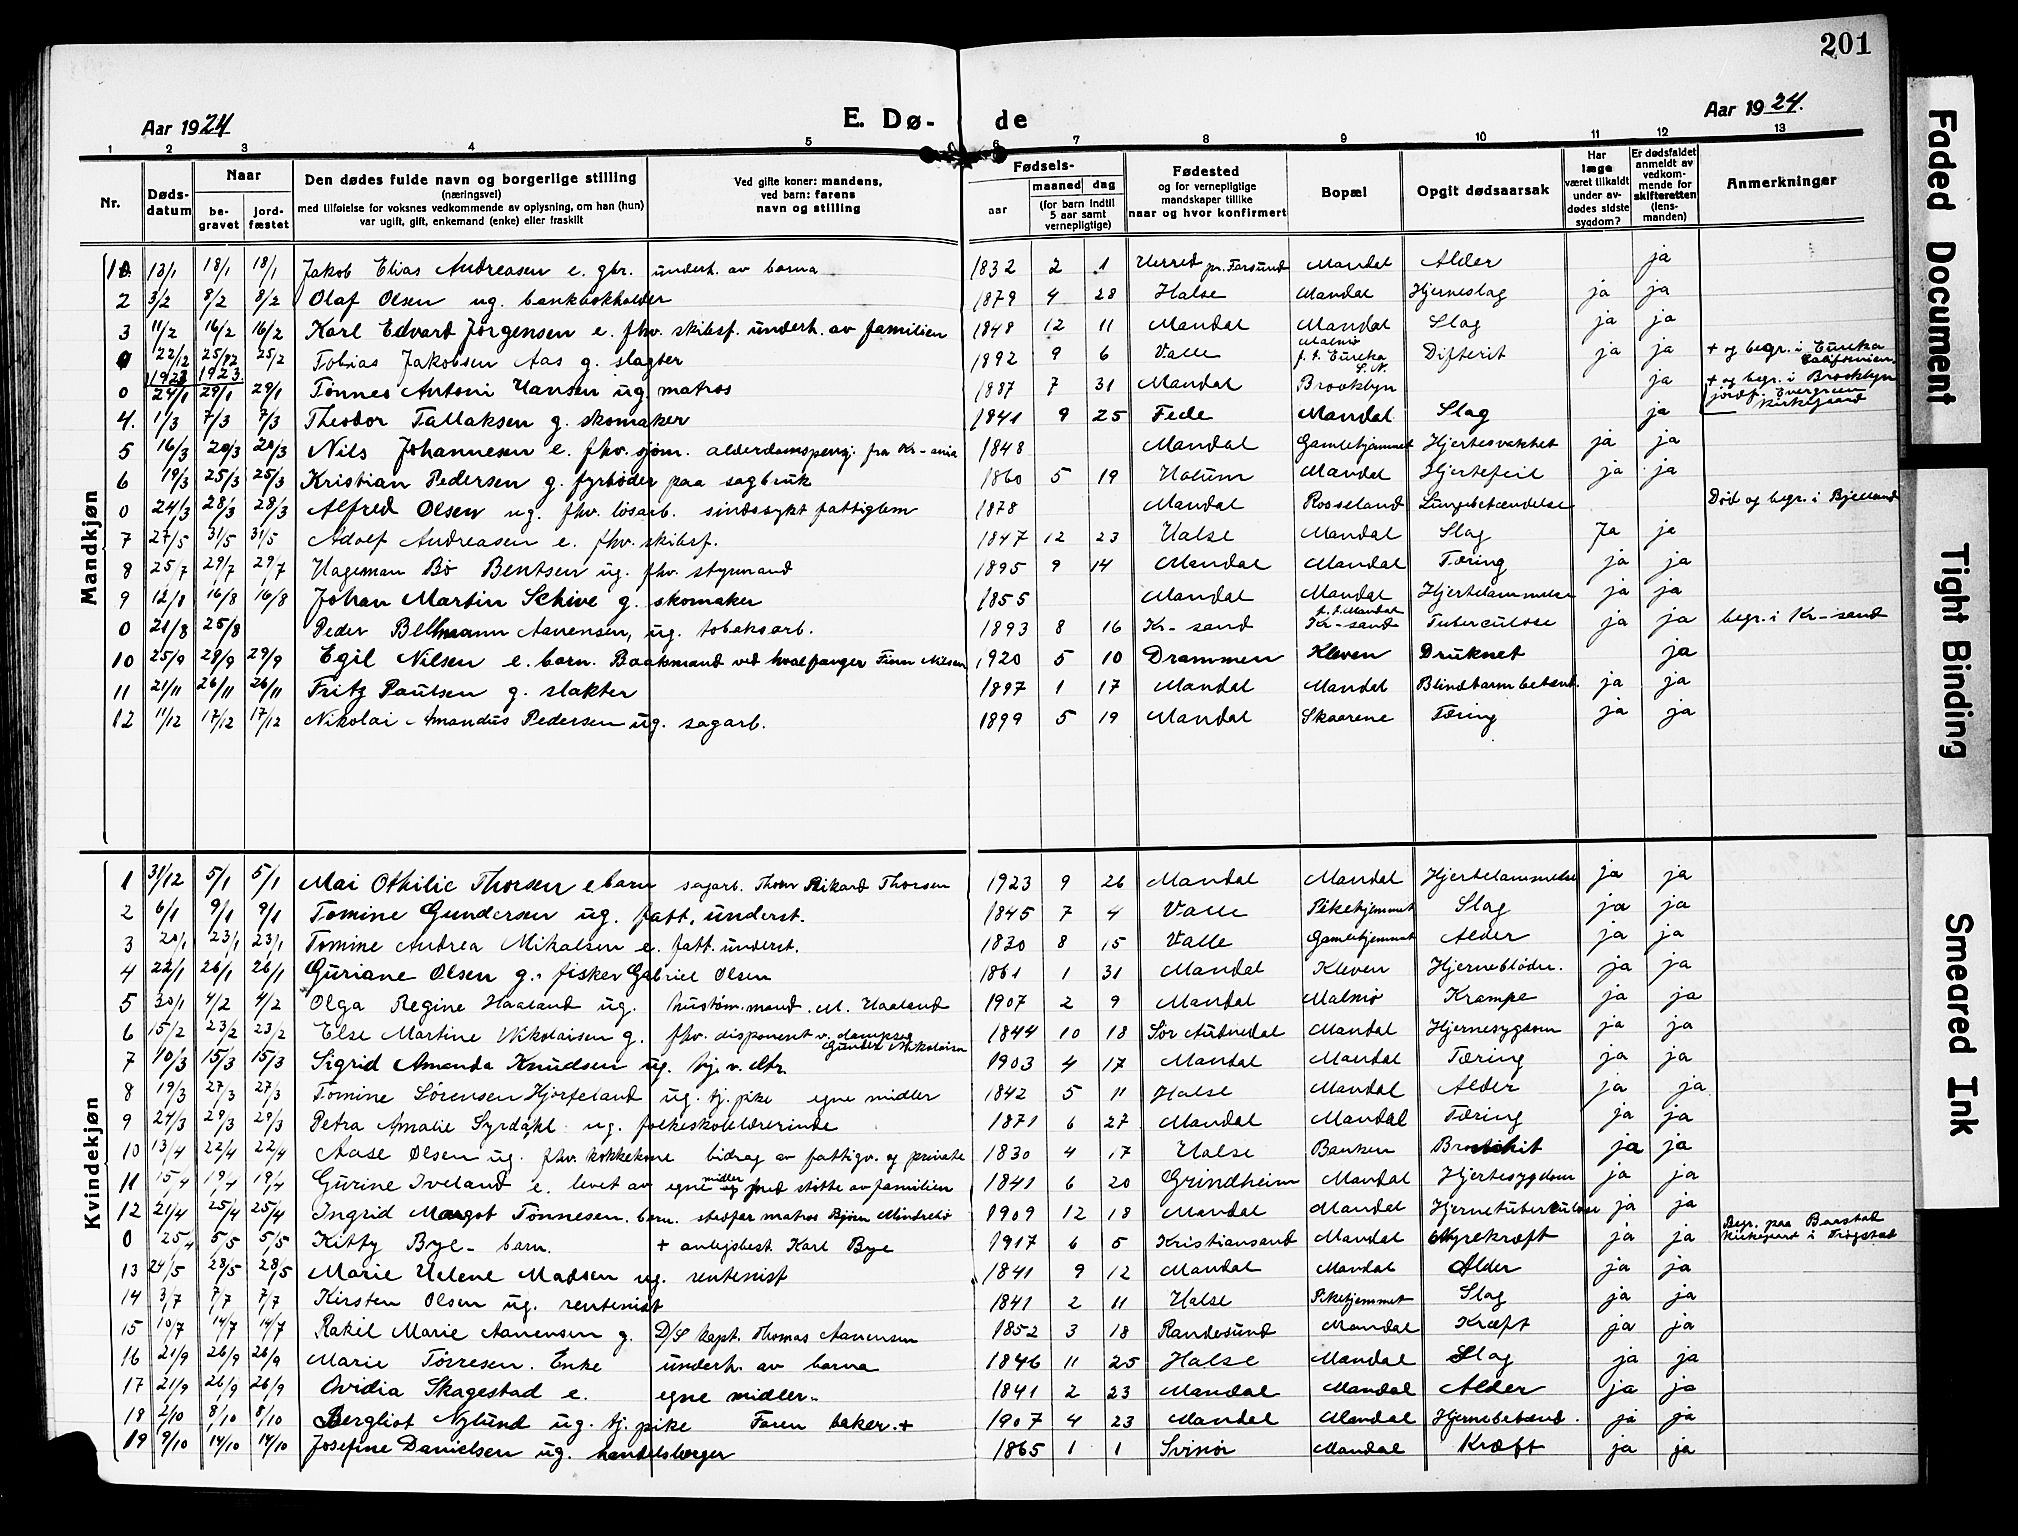 201
Aar 1924
E. Dø- de
Aar 1924.
1 2 3 4 5 6 7 8 9 10 11 12 13
Nr.
Døds-datum
Naar
be-gravet
jord-fæstet
Den dødes fulde navn og borgerlige stilling
(næringsvei)
med tilføielse for voksnes vedkommende av oplysning, om han (hun)
var ugift, gift, enkemand (enke) eller fraskilt
Ved gifte koner: mandens,
ved barn: farens
navn og stilling
Fødsels-
aar
maaned dag
(for barn indtil
5 aar samt
vernepligtige)
Fødested
og for vernepligtige
mandskaper tillike
naar og hvor konfirmert
Bopæl
Opgit dødsaarsak
Har
læge
været tilkaldt
under av-
dødes sidste
sygdom?
Er dødsfaldet
anmeldt av
vedkom-
mende for
skifteretten
(lens-
manden)
Anmerkninger
Mandkjøn
1 13/1 18/1 18/1 Jakob Elias Andreasen e. gbr. underh. av barna 1832 2 1 Herred pr. Farsund Mandal Alder ja
2 3/2 8/2 8/2 Olaf Olsen ug. bankbokholder 1879 4 28 Halse Mandal Hjerneslag ja ja
3 11/2 16/2 16/2 Karl Edvard Jørgensen e. fhv. skibsf. underh. av familien 1848 12 11 Mandal Mandal Slag ja ja
0 22/12 1923 25/12 1923 25/2 Tobias Jakobsen Aas g. slagter 1892 9 6 Valle Malmø f. t. Eureka Difterit ja ja + og begr. i Eureka Californien
0 24/1 29/1 29/1 Tønnes Antoni Hansen ug. matros 1887 7 31 Mandal Brooklyn ja + og begr. i Brooklyn jordf. Evergreen Kirkegaard
4. 1/3 7/3 7/3 Theodor Tallaksen g. skomaker 1841 9 25 Fede Mandal Slag ja
5 16/3 20/3 20/3 Nils Johannesen e. fhv. sjøm. alderdomspensj. fra Kr-ania 1848 Mandal Gamlehjemmet Hjertesvakhet ja ja
6 19/3 25/3 25/3 Kristian Pedersen g. fyrbøder paa sagbruk 1860 5 19 Holum Mandal Hjertefeil ja ja
0 24/3 28/3 28/3 Alfred Olsen ug. fhv. løsarb. sindssykt fattiglem 1878 Mandal Rosseland Lungebetændelse Død og begr. i Bjelland
7 27/5 31/5 31/5 Adolf Andreasen e. fhv. skibsf. 1847 12 23 Halse Mandal Slag Ja ja
8 25/7 29/7 29/7 Hageman Bø Bentsen ug. fhv. styrmand 1895 9 14 Mandal Mandal Tæring ja ja
9 12/8 16/8 16/8 Johan Martin Schive g. skomaker 1855 Mandal Mandal Hjertelammelse ja ja
0 21/8 25/8 Peder Bellmann Aanensen, ug. tobaksarb. 1893 8 16 Kr-sand f. t. Mandal Kr-sand Tuberculose ja ja begr. i Kr-sand
10 25/9 28/9 29/9 Egil Nilsen e. barn. Baaksmand ved hvalfanger Finn Nilsen 1920 5 10 Drammen Kleven Druknet ja
11 21/11 26/11 26/11 Fritz Paulsen g. slakter 1897 1 17 Mandal Mandal Blindtarmbetænd. ja ja
12 11/12 17/12 17/12 Nikolai Amandus Pedersen ug. sagarb. 1899 5 19 Mandal Skaarene Tæring ja ja
Kvindekjøn
1 31/12 5/1 5/1 Mai Othilie Thorsen e barn sagarb. Thom Rikard Thorsen 1923 9 26 Mandal Mandal Hjertelammelse ja ja
2 6/1 9/1 9/1 Tomine Gundersen ug. fatt. underst. 1845 7 4 Valle Pikehjemmet Slag ja ja
3 20/1 23/1 23/1 Tomine Andrea Mikalsen e. fatt. underst. 1830 8 15 Valle Gamlehjemmet Alder ja ja
4 22/1 26/1 26/1 Guriane Olsen g. fisker Gabriel Olsen 1861 1 31 Mandal Kleven Hjerneblødn. ja ja
5 30/1 4/2 4/2 Olga Regine Haaland ug. hustøm.mand. M. Haaland 1907 2 9 Mandal Malmø Krampe ja ja
6 15/2 23/2 23/2 Else Martine Nikolaisen g. fhv. disponent v. dampsag Gunder Nikolaisen 1844 10 18 Sør Audnedal Mandal Hjernesygdom ja ja
7 10/3 15/3 15/3 Sigrid Amanda Knudsen ug. hjv. dtr. 1903 4 17 Mandal Mandal Tæring ja ja
8 19/3 27/3 27/3 Tomine Sørensen Hjorteland ug. tj. pike egne midler 1842 5 11 Halse Mandal Alder ja ja
9 24/3 29/3 29/3 Petra Amalie Syrdahl ug. folkeskolelærerinde 1871 6 27 Mandal Mandal Tæring ja ja
10 13/4 22/4 22/4 Aase Olsen ug. fhv. kokkekone bidrag av fattigv. og private 1830 4 17 Halse Banken Bronchit ja ja
11 15/4 19/4 19/4 Gurine Iveland e. levet av egne midler og med støtte av familien 1841 6 20 Grindheim Mandal Hjertesygdom ja ja
12 21/4 25/4 25/4 Ingrid Margot Tønnesen. barn. stedfar matros Bjørn Mindrebø 1909 12 18 Mandal Mandal Hjernetuberculose ja ja
0 25/4 5/5 5/5 Kitty Bye - barn. + anlegsbest. Karl Bye 1917 6 5 Kristiansand Mandal Nyrekræft ja ja Begr. paa Baastad Kirkegard i Trøgstad
13 24/5 28/5 28/5 Marie Helene Madsen ug. rentenist 1841 9 12 Mandal Mandal Alder ja ja
14 3/7 7/7 7/7 Kirsten Olsen ug. rentenist 1841 2 11 Halse Pikehjemmet Slag ja ja
15 10/7 14/7 14/7 Rakel Marie Aanensen g. D/S kapt. Thomas Aanensen 1852 3 18 Randesund Mandal Kræft ja ja
16 21/9 26/9 26/9 Marie Tørresen. Enke underh. av barna 1846 11 25 Halse Mandal Slag ja ja
17 21/9 26/9 26/9 Ovidia Skagestad e. egne midler. 1841 2 23 Mandal Mandal Alder ja ja
18 2/10 8/10 8/10 Bergliot Nylund ug. tj. pike Faren baker. + 1907 4 23 Mandal Mandal Hjernebetænd. ja ja
19 9/10 14/10 14/10 Josefine Danielsen ug. handelsborger 1865 1 1 Svinør Mandal Kræft ja ja
Faded Document
Tight Binding
Smeared Ink